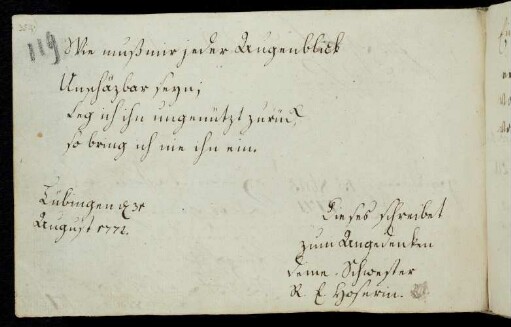 119
Wie muß mir jeder Augenblick
Unschäzbar seyn;
Leg ich ihn ungenützt zurück,
so bring ich nie ihn ein.
Tubingen d 3t
August 1772.
Dieses schreibet
zum Angedencken
deine Schwester
R. E. Hoserin.